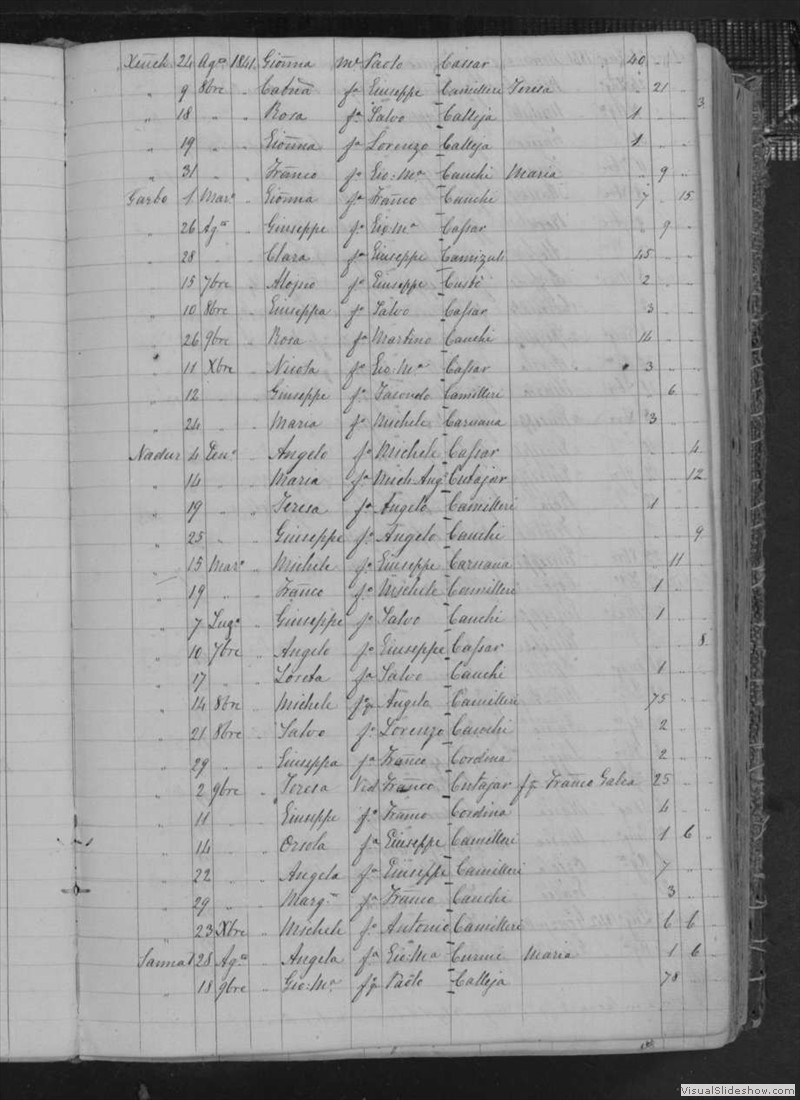 Xeuch. 24 Ag.to 1841. Gionna Mo Paolo Cassar 40 "
" 9 8bre " Catña fa Giuseppe Camilleri Teresa " 21 "
" 18 " " Rosa fa Salvo Calleja 1 " 3
" 19 " " Gionna fa Lorenzo Calleja 1 "
" 31 " " Franco fo Gio: Ma Cauchi Maria " 9 "
Garbo 1 Maro " Gionna fa Franco Cauchi 7 " 15
" 26 Ago " Giuseppe fo Gio Ma Cassar " 9 "
" 28 " " Clara fa Giuseppe 45 "
" 15 7bre " fo Giuseppe 2 "
" 10 8bre " Giuseppa fa Salvo Cassar 3 "
" 26 9bre " Rosa fa Martino Cauchi 14 "
" 11 Xbre " Nicola fo Gio: Ma Cassar 3 "
" 12 " " Giuseppe fo Camilleri " 6
" 24 " " Maria fa Michele Caruana 3 "
Nadur 4 Geno " Angelo fo Michele Cassar " " 4
" 14 " " Maria fa Mich Ango Cutajar " " 12
" 19 " " Teresa fa Angelo Camilleri 1 "
" 25 " " Giuseppe fo Angelo Cauchi " " 9
" 15 Maro " Michele fo Giuseppe Caruana " 11 "
" 19 " " Franco fo Michele Camilleri 1 "
" 7 Lugo " Giuseppe fo Salvo Cauchi 1 "
" 10 7bre " Angelo fo Giuseppe Cassar " " 8
" 17 " " Loreta fa Salvo Cauchi 1 "
" 14 8bre " Michele fq Angelo Camilleri 75 "
" 21 8bre " Salvo fo Lorenzo Cauchi 2 "
" 29 " " Giuseppa fa Franco Cordina 2 "
" 2 9bre " Teresa Vid Franco Cutajar fq Franco Galea 25 "
" 11 " " Giuseppe fo Franco Cordina 4 "
" 14 " " Orsola fa Giuseppe Camilleri 1 6 "
" 22 " " Angela fa Giuseppe Camilleri 7 "
" 29 " " Marg.a fa Franco Cauchi 3 "
" 23 Xbre " Michele fo Antonio Camilleri 6 6 "
Sannat 28 Ago " Angela fa Gio Ma Curmi Maria 1 6 "
" 18 9bre " Gio: Ma fq Paolo Calleja 78 "
VisualSlideshow.com